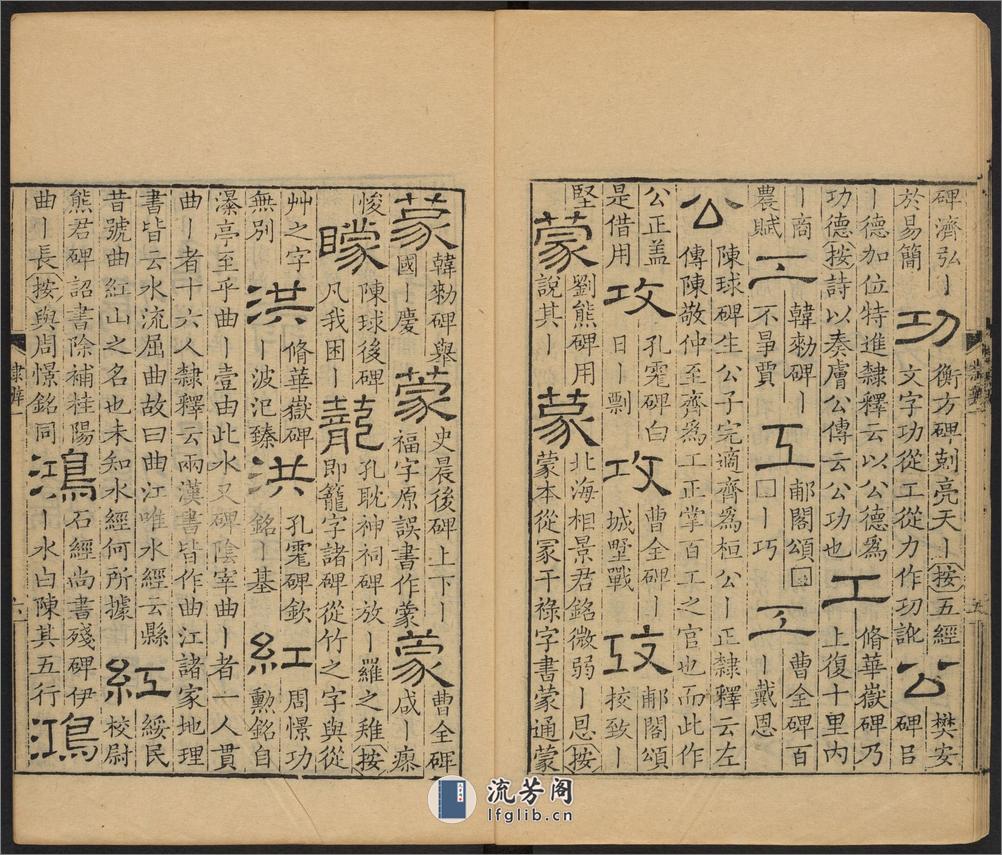 碑濟弘丨 功 衡方碑剋亮天丨按五經 公 樊安
於易簡 文字功從工從力作功訛 碑㠯
丨德加位特進隸釋云以公德為 工 脩華嶽碑乃
功德按詩以奏膚公傳云公功也 上復十里內
丨商 工 韓勑碑丨 工 郙閣頌囗 工 曹全碑百
農賦 不爭賈 囗丨巧 丨戴恩
公 陳球碑生公子完適齊為桓公丨正隸釋云左
傳陳敬仲至齊為工正掌百工之官也而此作
公正盖 攻 孔碑白 攻 曹全碑丨 攻 郙閣頌
是借用 日丨剽 城墅戰 校致丨
堅 蒙 劉熊碑用 蒙 北海相景君銘微弱丨恩按
說其丨 蒙本從冡干祿字書蒙通蒙
五
蒙 韓勑碑舉 蒙 史晨後碑上下丨 蒙 曹全碑
國丨慶 福字原誤書作蒙 咸丨瘳
悛 矇 陳球後碑 蘢 孔耽神祠碑放丨羅之雉按
凡我困丨 即籠字諸碑從竹之字與從
艸之字 洪 脩華嶽碑 洪 孔碑欽 紅 周憬功
無別 丨波汜臻 銘丨基 勳銘自
瀑亭至乎曲丨壹由此水又碑陰宰曲丨者一人貫
曲丨者十六人隸釋云兩漢書皆作曲江諸家地理
書皆云水流屈曲故曰曲江唯水經云縣 紅 綏民
昔號曲紅山之名也未知水經何所據 校尉
熊君碑詔書除補桂陽 鴻 石經尚書殘碑伊 鴻
曲丨長按與周憬銘同 丨水白陳其五行
隸辨 六
流芳阁
lfglib.cn